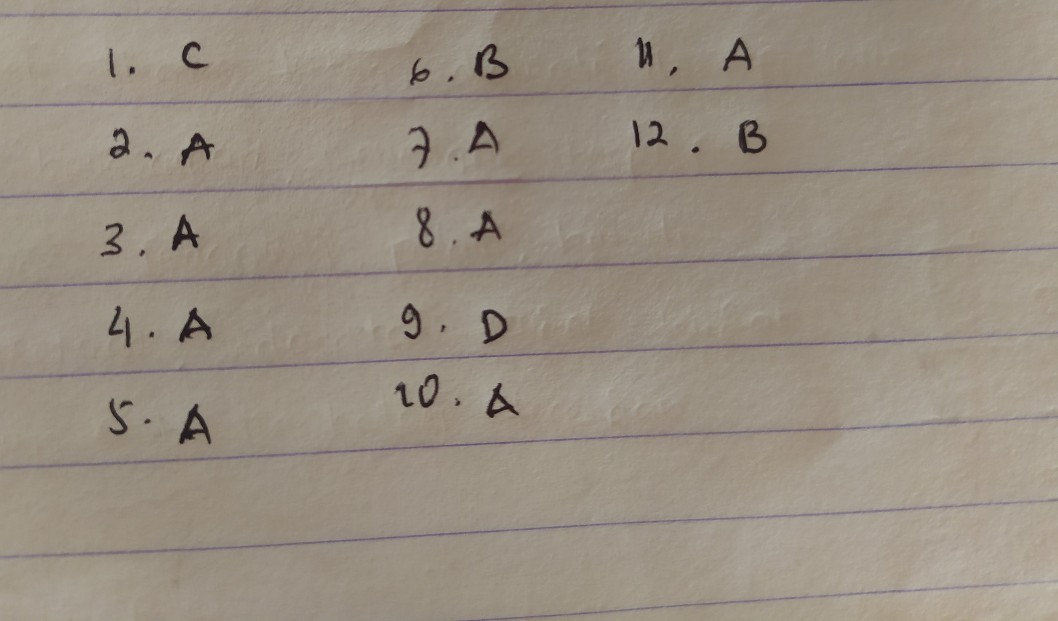 1. C
2. A
3. A
4. A
5. A
6. B
7. A
8. A
9. D
10. A
11. A
12. B